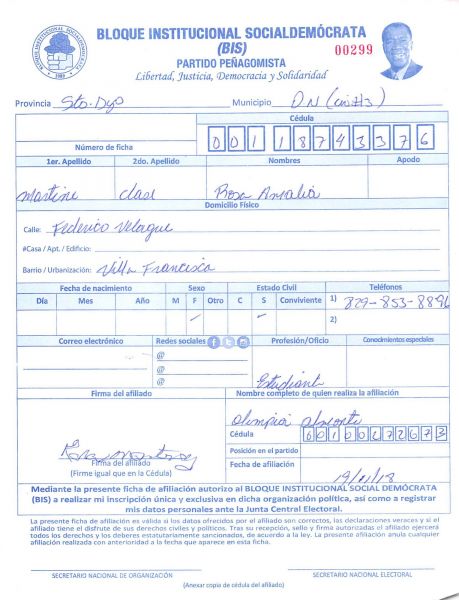 BLOQUE INSTITUCIONAL SOCIALDEMÓCRATA
(BIS)
00299
PARTIDO PEÑAGOMISTA
Libertad, Justicia, Democracia y Solidaridad
Provincia Sto. Dgo Municipio D.N (
Cédula
Número de ficha 001 1874337 6
1er. Apellido 2do. Apellido Nombres Apodo
Martine clase Rosa Amalia
Domicilio Físico
Calle: Federico Velazque
#Casa / Apt. / Edificio:
Barrio / Urbanización: Villa Francisca
Fecha de nacimiento Sexo Estado Civil Teléfonos
Día Mes Año M F Otro C S Conviviente 1) 829-853-8896
2)
Correo electrónico Redes sociales Profesión/Oficio Conocimientos especiales
@
@
@
Estudiante
Firma del afiliado Nombre completo de quien realiza la afiliación
Olimpia almonte
Cédula 00100272673
Posición en el partido
Firma del afiliado
(Firme igual que en la Cédula)
Fecha de afiliación 19/11/18
Mediante la presente ficha de afiliación autorizo al BLOQUE INSTITUCIONAL SOCIAL DEMÓCRATA
(BIS) a realizar mi inscripción única y exclusiva en dicha organización política, así como a registrar
mis datos personales ante la Junta Central Electoral.
La presente ficha de afiliación es válida si los datos ofrecidos por el afiliado son correctos, las declaraciones veraces y si el
afiliado tiene el disfrute de sus derechos civiles y políticos. Tras su recepción, sello y firma autorizadas el afiliado ejercerá
todos los derechos y los deberes estatutariamente sancionados, de acuerdo a la ley. La presente afiliación anula cualquier
afiliación realizada con anterioridad a la fecha que aparece en esta ficha.
SECRETARIO NACIONAL DE ORGANIZACIÓN SECRETARIO NACIONAL ELECTORAL
(Anexar copia de cédula del afiliado)